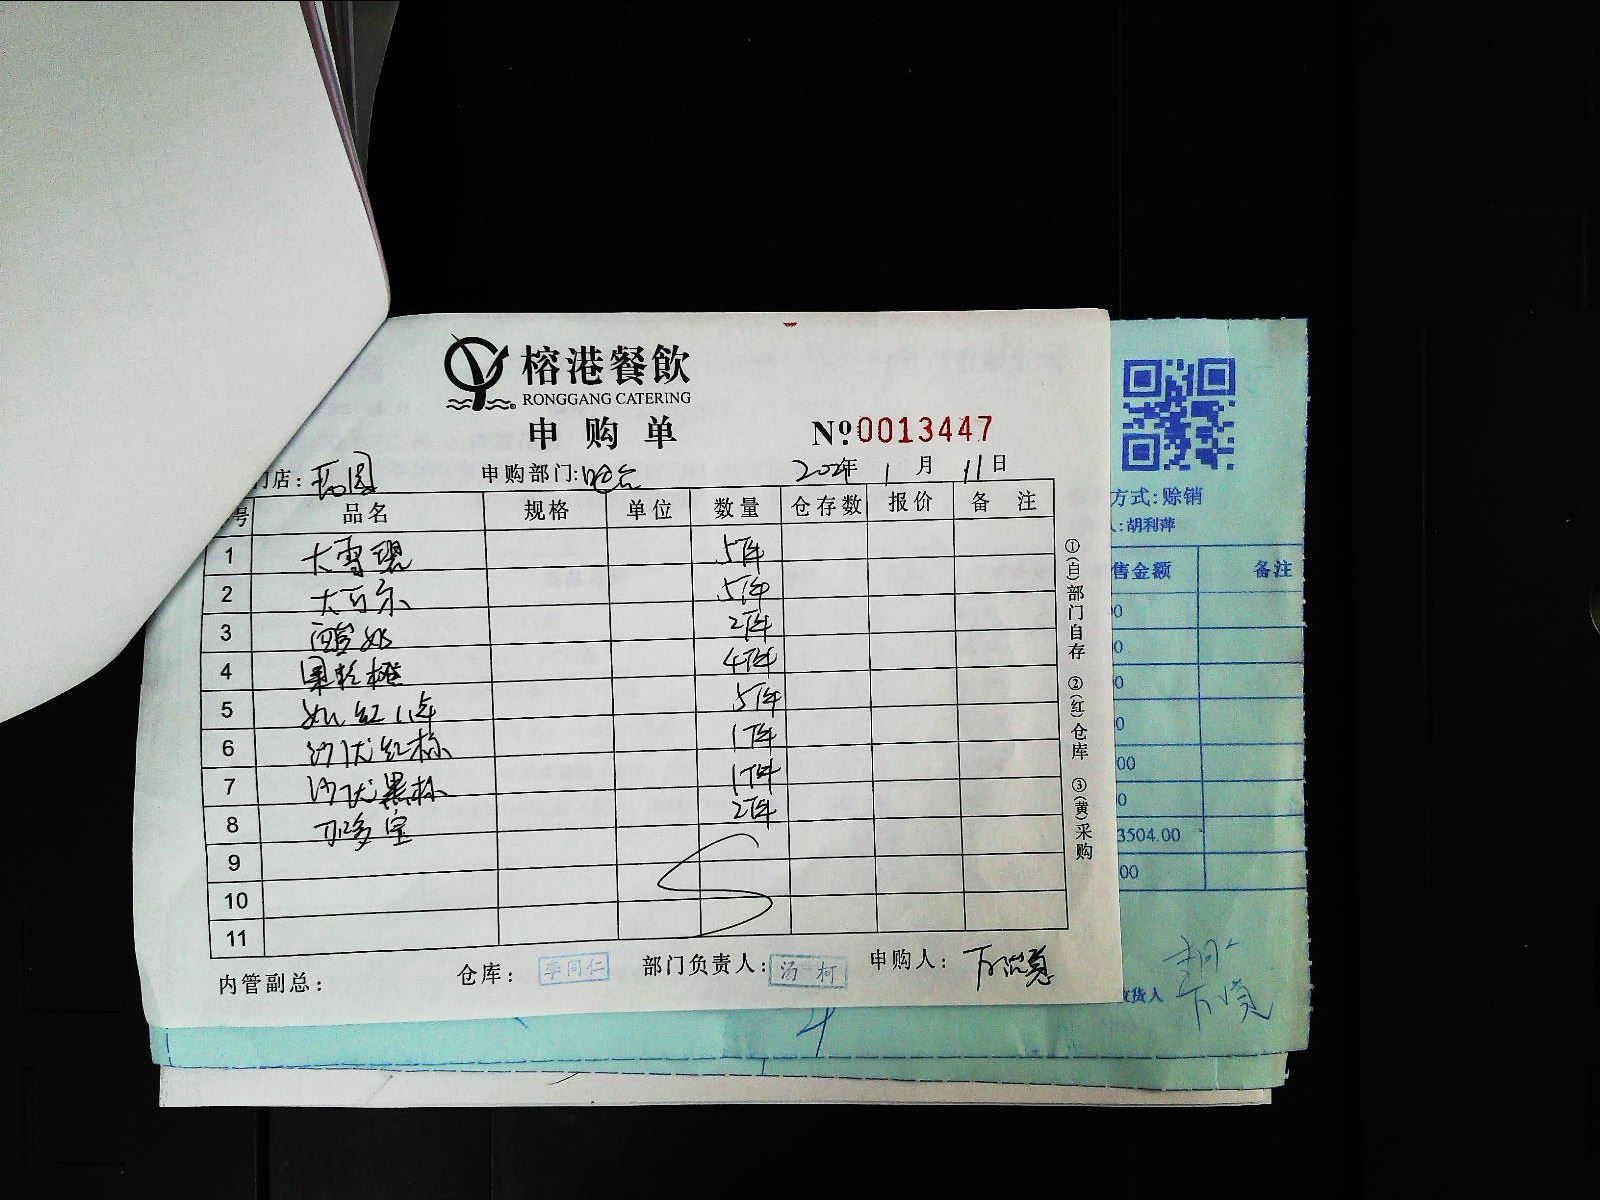 榕港餐飲
RONGGANG CATERING
申购单
№ 0013447
店: 申购部门:吧台 202 年 1 月 11 日
号 品名 规格 单位 数量 仓存数 报价 备注
1 大雪碧 5件
2 大可乐 5件
3 2件
4 果粒橙 4件
5 5件
6 沙优红标 1件
7 沙优黑标 1件
8 加多宝 2件
9
10
11
内管副总: 仓库: 李同仁 部门负责人: 汤柯 申购人:
①(白)部门自存 ②(红)仓库 ③(黄)采购
方式: 赊销
人: 胡利萍
售金额 备注
00
0
00
0
00
0
3504.00
.00
收货人